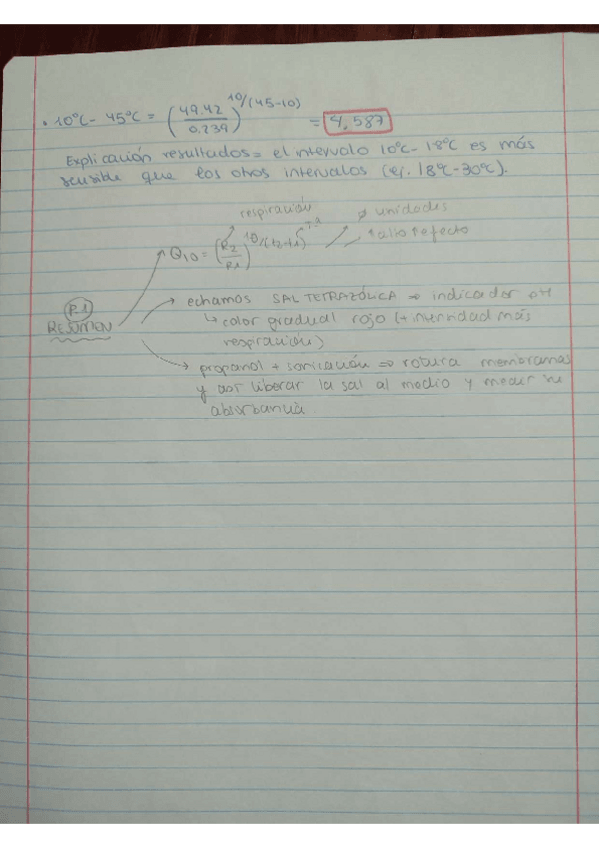 • 10ºC - 45ºC = (49.42 / 0.239)^10/(45-10) = 4,587
Explicación resultados = el intervolo 10ºC - 18ºC es más
sensible que los otros intervalos (ej. 18ºC - 30ºC).
respiración
Tª
ø unidades
Q10 = (R2 / R1)^10/(t2-t1)
P.1
RESUMEN
echamos SAL TETRAZÓLICA → indicador pH
↳ color gradual rojo (+ intensidad más
respiración)
propanol + sonicación => rotura membranas
y así liberar la sal al medio y medir su
absorbancia.